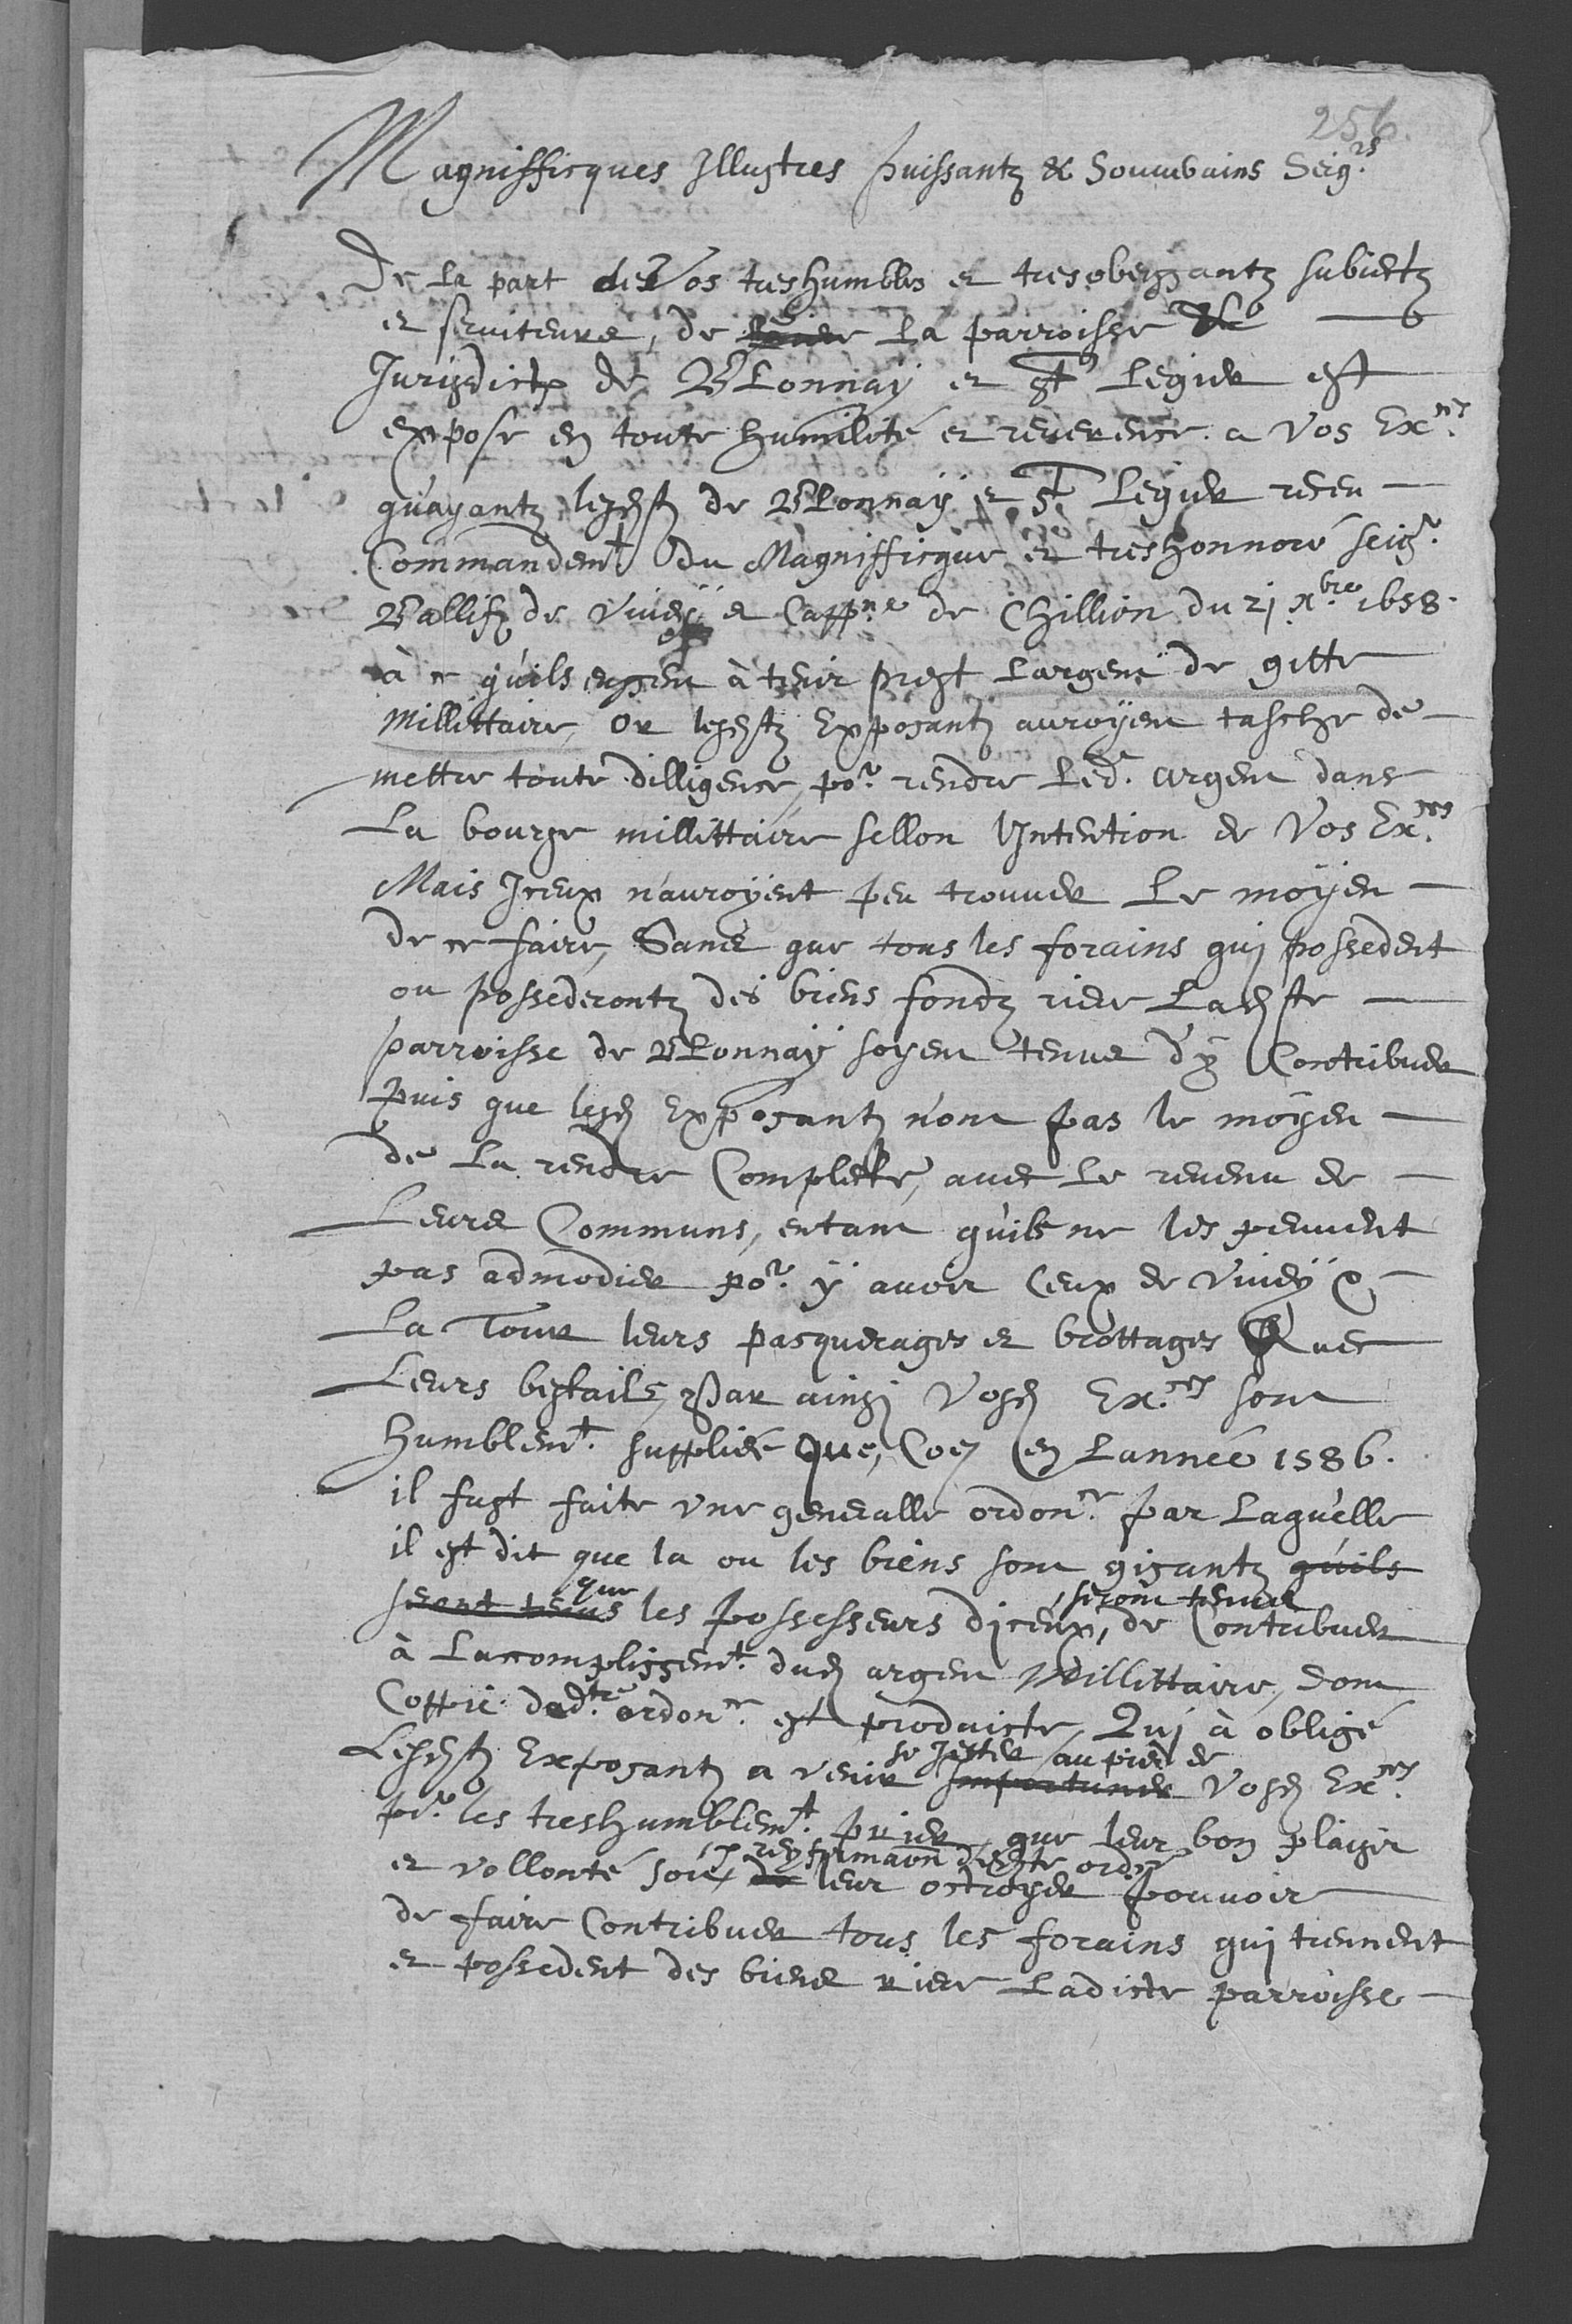 256.
Magnifficques Illustres puissantz & Souuerains Seig.rs
De la part de Vos treshumbles et tresobeissantz subiectz
et seruiteurs, de la parroisse &
Jurisdicto de BLonnaÿ et St Legier est
expose en toute humilité et reuerence a Vos Ex.ces
qu'ayantz lesdstz de BLonnaÿ et St Legier receu
Commandemt du Magnifficque et treshonnoré seig.r
Ballifz de Viueÿ et Capp.ne de Chillion du 21 xbre 1658.
à ce qu'ils eussent à tenir prest Largent de gitte
Millittaire, Or lesdstz Exposantz auroÿent tasche de
mettre toute dilligence, po.r rendre Led. argent dans
La bourse millittaire sellon l'Intention de Vos Ex.ces
Mais Jceux n'auroÿent peu trouuer Le moÿen
de ce faire, Sans que tous les forains quj possedent
ou possederontz des biens fondz riere Ladste
parroisse de BLonnaÿ soyent tenus d'ÿ Contribuer
Puis que lesd Exposantz n'ont pas le moÿen
de La rendre Complette, auec Le reuenu de
Leurs Communs, entant qu'ils ne les peuuent
pas admodier po.r ÿ auoir Ceux de Viueÿ &
La Tour leurs pasquerages et brottages Auec
Leurs bestails, Par ainsj Vosd Ex.ces sont
humblemt. suppliée que, Coe en Lannée 1586.
il fust faite vne generalle ordon.ce par Laquelle
il est dit que la ou les biens sont gisantz qu'ils
seront tenus que les possesseurs d'jceux, seront tenus de Contribuer
à Laccomplissemt. dud argent Millittaire, dont
Coppie dad.te ordon.ce est produicte, Quj à obligé
Lesdstz Exposantz a venir importuner se Jetter au pied de Vosd Ex.ces
po.r les treshumblemt. prier, que leur bon plaisir
et vollonté soit, de leur octroyer pouvoir
de faire Contribuer tous les forains quj tiennent
et possedent des biens riere Ladicte parroisse